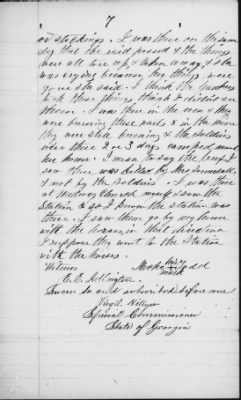 7
or stockings. I was there on the same
day that the raid passed & the things
were all tore up & taken away, & she
was crying because her things were
gone she said. I think the Yankees
took those things though I did not see
them. I was there in the eve & they
were burning those rails & in the morn
they were still burning & the soldiers
were there 2 or 3 days camped around
her house. I mean to say the beef I
saw there was killed by
& not by the soldiers. I was there
at
Station & so I know the station was
there. I saw them go by my house
with the horses, in that direction
I suppose they went to the Station
with the horses.
Witness his
Moke X Todd
mark
Sworn to and subscribed before me
Virgil Hillyer
Special Commissioner
State of Georgia